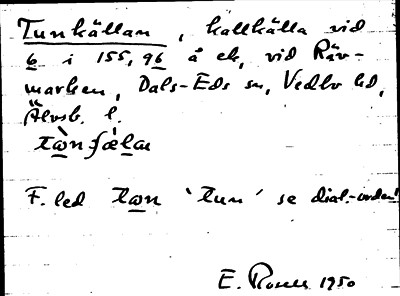 Tunkällan, kallkälla vid
6 i 155,96 å ek, vid Räv-
marken, Dals-Eds sn, Vedbo hd,
Älvsb. l.
F. led "tun" se dial.-orden!
E. 1950